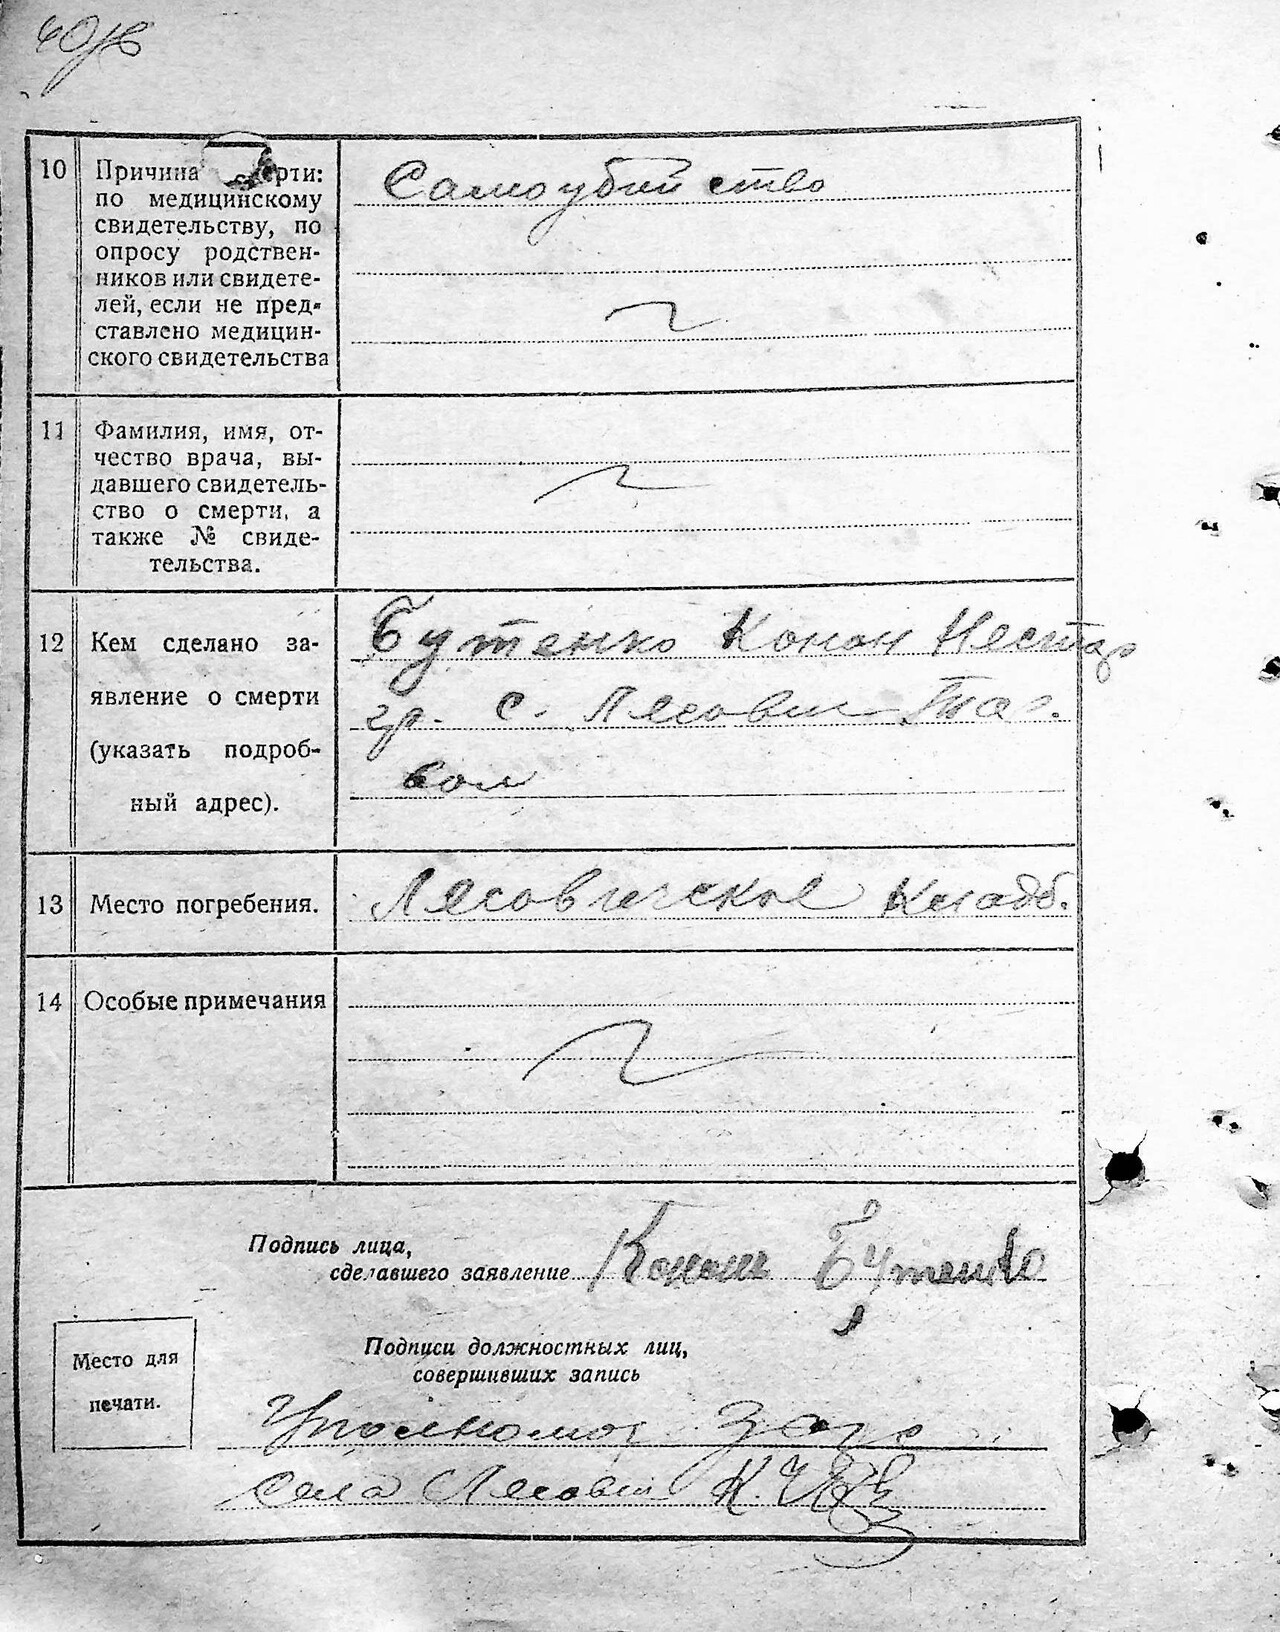 10
Причина смерти:
по медицинскому
свидетельству, по
опросу родствен-
ников или свидете-
лей, если не пред-
ставлено медицин-
ского свидетельства
Самоубийство
11
Фамилия, имя, от-
чество врача, вы-
давшего свидетель-
ство о смерти, а
также № свиде-
тельства.
12
Кем сделано за-
явление о смерти
(указать подроб-
ный адрес).
Бутенко Конон Нестор
гр. с. Лясович Таг.
вол
13
Место погребения.
Лясовическое Кладб.
14
Особые примечания
Подпись лица,
сделавшего заявление
Конон Бутенко
Место для
печати.
Подписи должностных лиц,
совершивших запись
Уполномоч
села Лясович